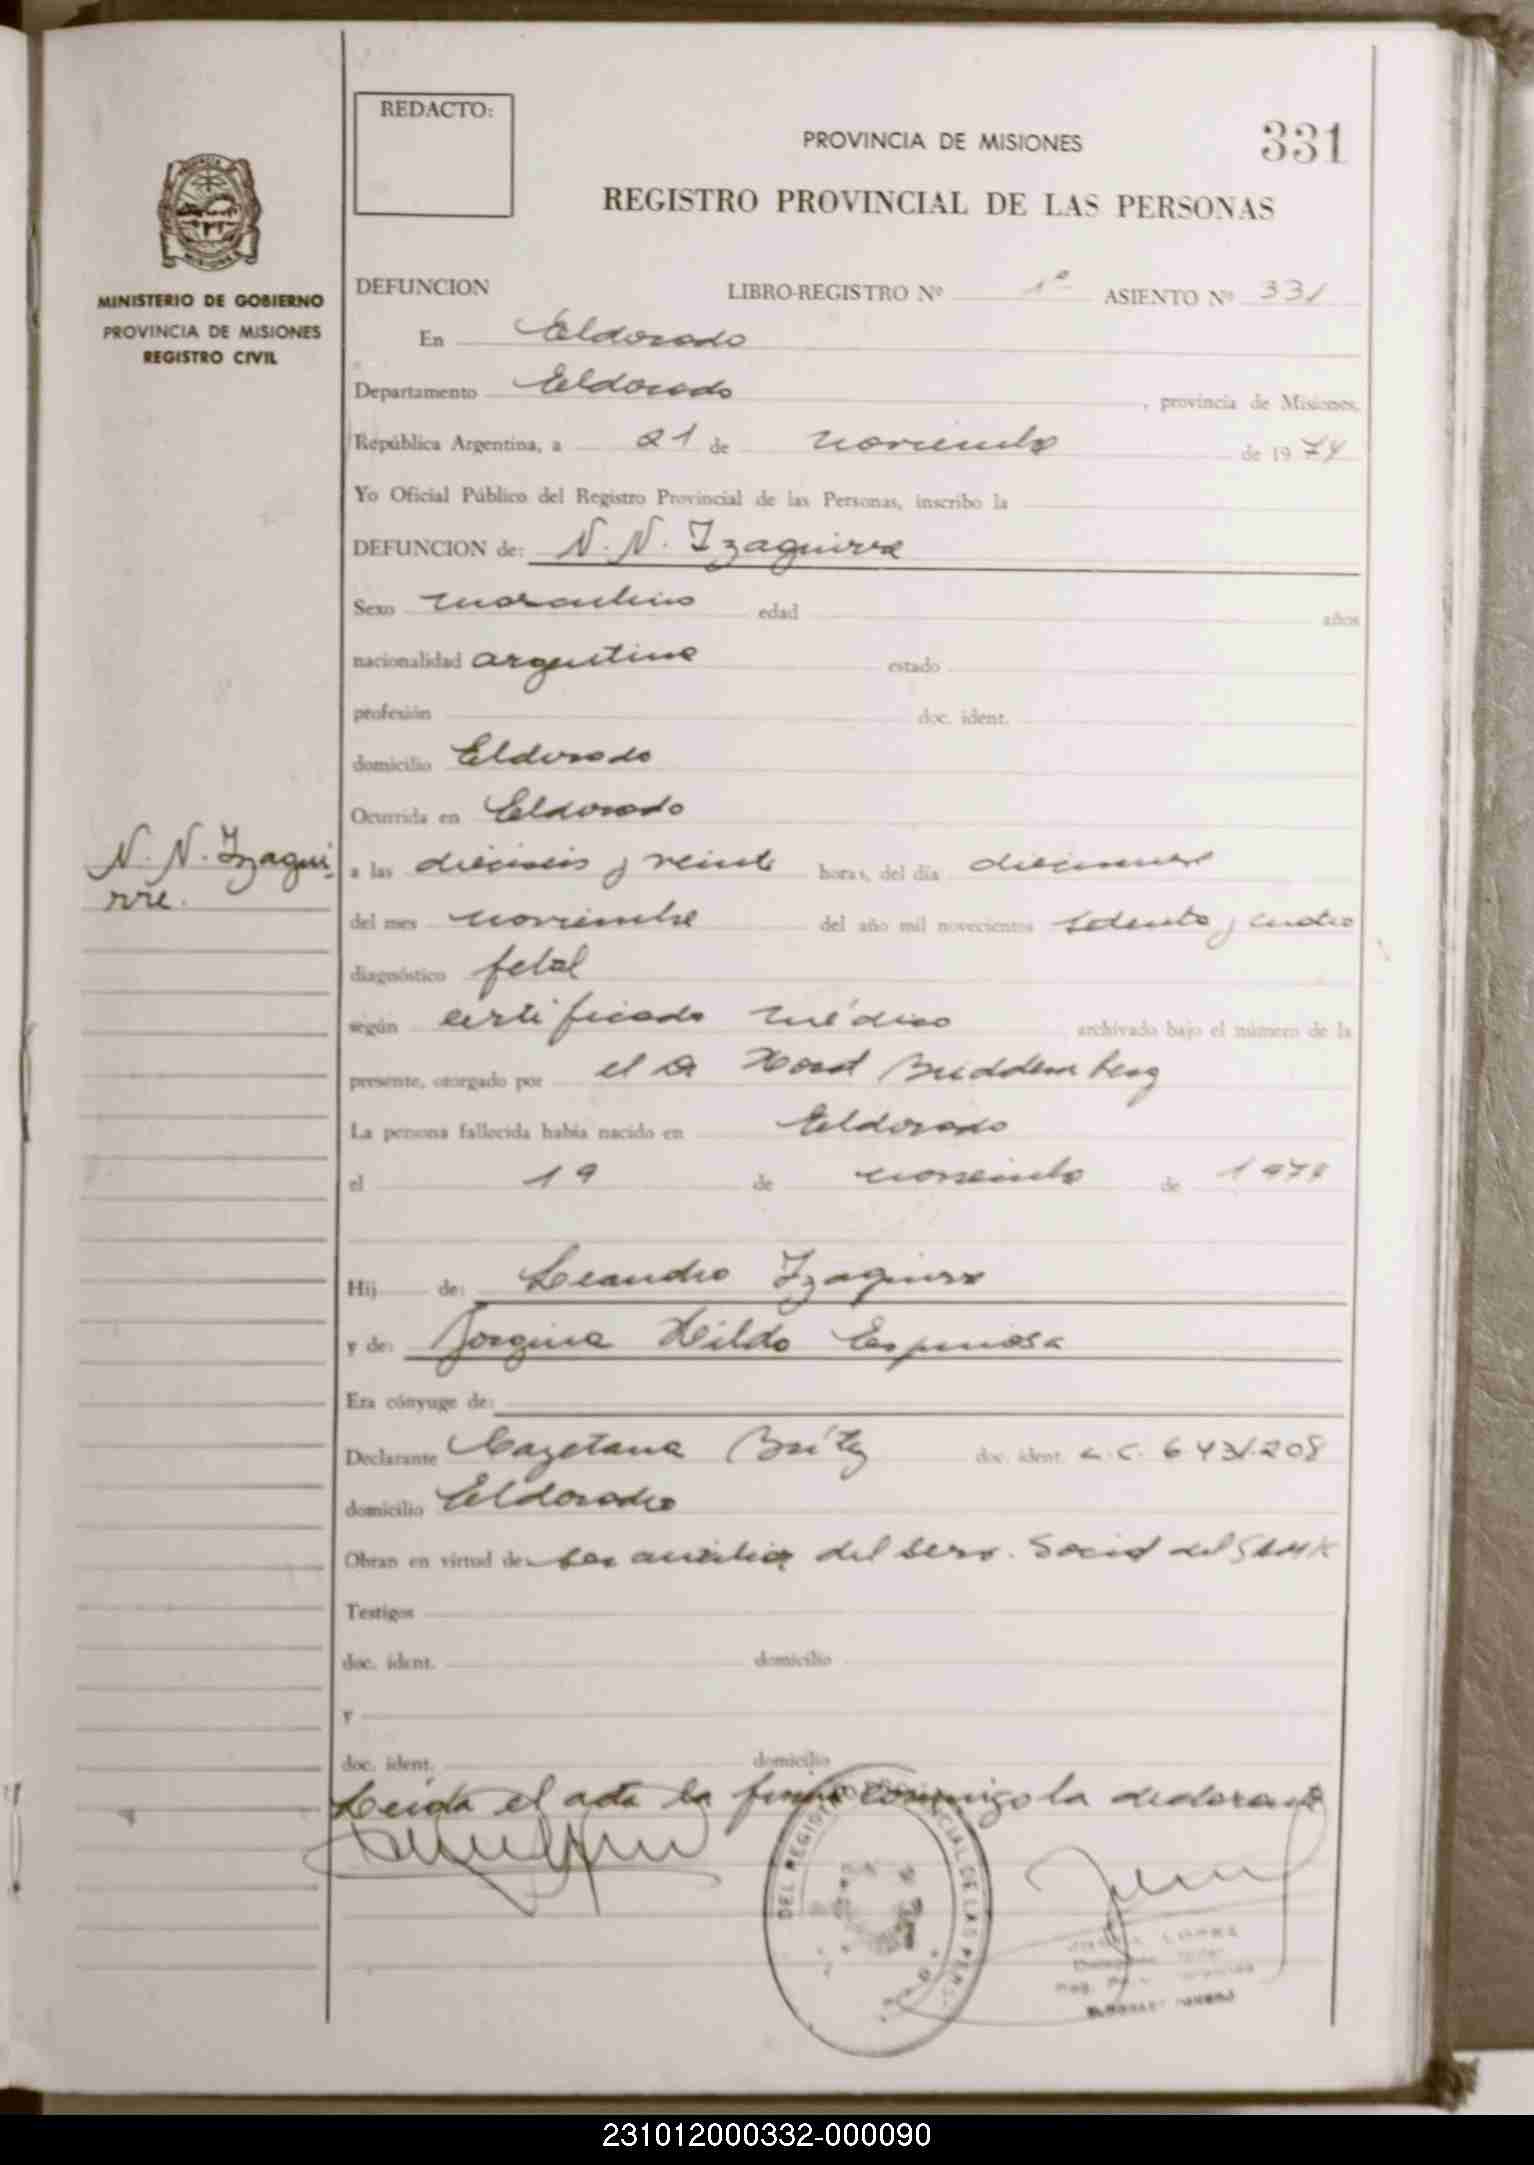 REDACTO:
PROVINCIA DE MISIONES
331
REGISTRO PROVINCIAL DE LAS PERSONAS
MINISTERIO DE GOBIERNO
PROVINCIA DE MISIONES
REGISTRO CIVIL
DEFUNCION LIBRO-REGISTRO Nº 1º ASIENTO Nº 331
En Eldorado
Departamento Eldorado, provincia de Misiones,
República Argentina, a 21 de noviembre de 1974
Yo Oficial Público del Registro Provincial de las Personas, inscribo la
DEFUNCION de: N. N. Izaguirre
Sexo masculino edad años
nacionalidad argentina estado
profesión doc. ident.
domicilio Eldorado
Ocurrida en Eldorado
N. N. Izagui-
rre.
a las dieciseis y veinte horas, del día diecinueve
del mes noviembre del año mil novecientos setenta y cuatro
diagnóstico fetal
según certificado médico archivado bajo el número de la
presente, otorgado por el Dr Horst Buddemberg
La persona fallecida había nacido en Eldorado
el 19 de noviembre de 1974
Hij de: Leandro Izaguirre
y de: Jorgina Hilda Espinosa
Era cónyuge de:
Declarante Cayetana Brítez doc. ident. L.C. 6.431.208
domicilio Eldorado
Obran en virtud de ser auxiliar del serv. Social del SAMIC
Testigos
doc. ident. domicilio
y
doc. ident. domicilio
Leída el acta la firma conmigo la declarante
DEL REGISTRO PROVINCIAL DE LAS PERS
LOPEZ